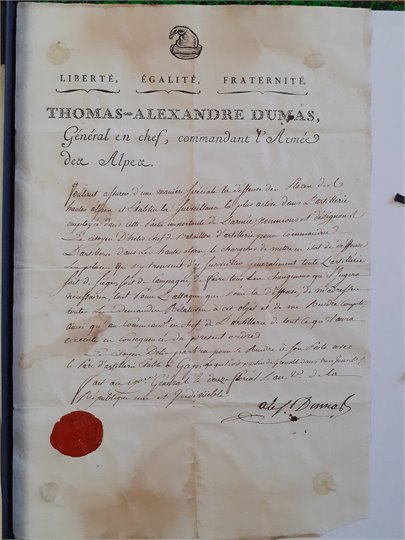 LIBERTÉ, ÉGALITÉ, FRATERNITÉ,
THOMAS-ALEXANDRE DUMAS,
Général en chef, commandant l'Armée
des Alpes.
Voulant assurer d'une manière spéciale la deffense des Places des
hautes alpes et Etablir la Surveillance la plus active dans L'artillerie
employée dans cette Partie importante de L'armée, Nommons et désignons
Le citoyen chef de Bataillon d'artillerie pour Commander
L'artillerie dans Les hautes alpes, le chargeons de mettre en état de deffense
Les places qui s'y trouvent, de Surveiller Généralement toute L'artillerie
soit de siège, soit de campagne, de faire tous Les changemens qu'il jugera
nécessaires, tant pour L'attaque que pour la deffense, de m'adresser
toutes Les demandes Relatives à cet objet et de me Rendre compte
ainsi qu'au commandant en chef de L'artillerie de tout ce qu'il aura
exécuté en conséquence du présent ordre.
Le citoyen partira pour se Rendre à son Poste avec
le Parc d'artillerie à Gap
fait au Général le floréal L'an 2e de La
République une et Indivisible
Alex. Dumas